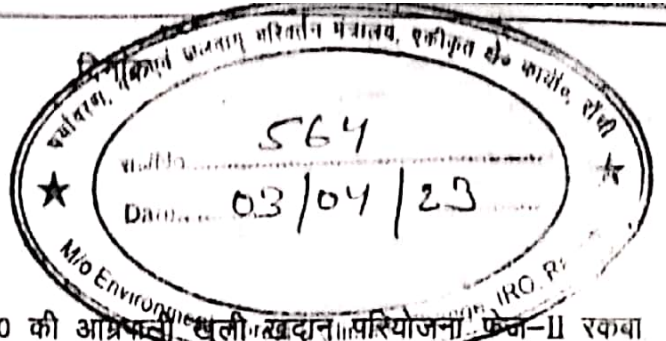 पर्यावरण, वन एवं जलवायु परिवर्तन मंत्रालय, एकीकृत क्षे० कार्या०, राँची
564
Date 03/04/23
M/o Environment IRO, R
की आम्रपाली खुली खदान परियोजना फेज-II रकबा